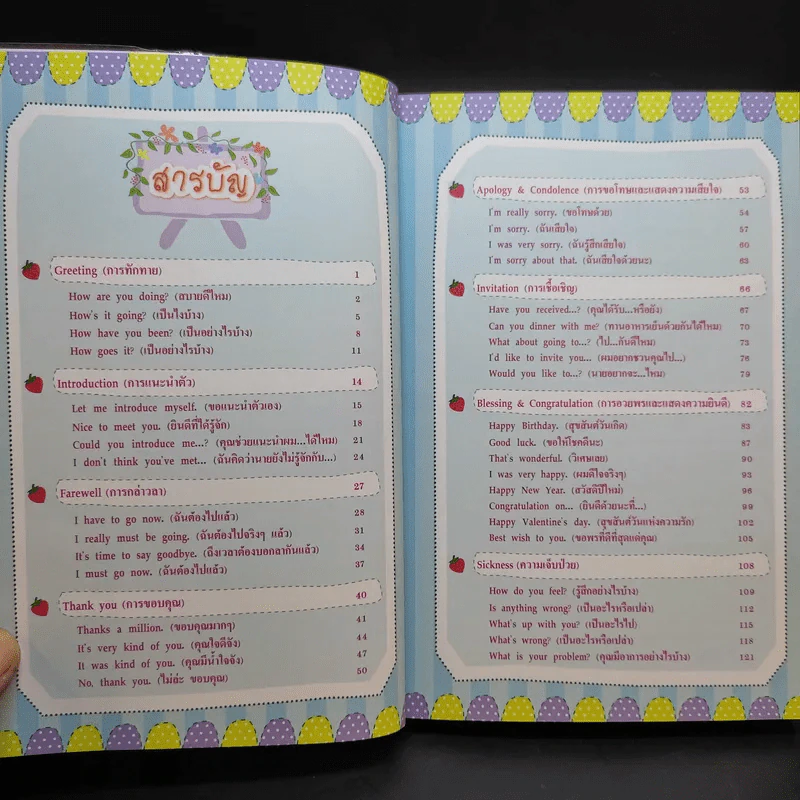 สารบัญ
Greeting (การทักทาย) 1
How are you doing? (สบายดีไหม) 2
How's it going? (เป็นไงบ้าง) 5
How have you been? (เป็นอย่างไรบ้าง) 8
How goes it? (เป็นอย่างไรบ้าง) 11
Introduction (การแนะนำตัว) 14
Let me introduce myself. (ขอแนะนำตัวเอง) 15
Nice to meet you. (ยินดีที่ได้รู้จัก) 18
Could you introduce me...? (คุณช่วยแนะนำผม...ได้ไหม) 21
I don't think you've met... (ฉันคิดว่านายยังไม่รู้จักกับ...) 24
Farewell (การกล่าวลา) 27
I have to go now. (ฉันต้องไปแล้ว) 28
I really must be going. (ฉันต้องไปจริงๆ แล้ว) 31
It's time to say goodbye. (ถึงเวลาต้องบอกลากันแล้ว) 34
I must go now. (ฉันต้องไปแล้ว) 37
Thank you (การขอบคุณ) 40
Thanks a million. (ขอบคุณมากๆ) 41
It's very kind of you. (คุณใจดีจัง) 44
It was kind of you. (คุณมีน้ำใจจัง) 47
No, thank you. (ไม่ล่ะ ขอบคุณ) 50
Apology & Condolence (การขอโทษและแสดงความเสียใจ) 53
I'm really sorry. (ขอโทษด้วย) 54
I'm sorry. (ฉันเสียใจ) 57
I was very sorry. (ฉันรู้สึกเสียใจ) 60
I'm sorry about that. (ฉันเสียใจด้วยนะ) 63
Invitation (การเชื้อเชิญ) 66
Have you received...? (คุณได้รับ...หรือยัง) 67
Can you dinner with me? (ทานอาหารเย็นด้วยกันได้ไหม) 70
What about going to...? (ไป...กันดีไหม) 73
I'd like to invite you... (ผมอยากชวนคุณไป...) 76
Would you like to...? (นายอยากจะ...ไหม) 79
Blessing & Congratulation (การอวยพรและแสดงความยินดี) 82
Happy Birthday. (สุขสันต์วันเกิด) 83
Good luck. (ขอให้โชคดีนะ) 87
That's wonderful. (วิเศษเลย) 90
I was very happy. (ผมดีใจจริงๆ) 93
Happy New Year. (สวัสดีปีใหม่) 96
Congratulation on... (ยินดีด้วยนะที่...) 99
Happy Valentine's day. (สุขสันต์วันแห่งความรัก) 102
Best wish to you. (ขอพรที่ดีที่สุดแด่คุณ) 105
Sickness (ความเจ็บป่วย) 108
How do you feel? (รู้สึกอย่างไรบ้าง) 109
Is anything wrong? (เป็นอะไรหรือเปล่า) 112
What's up with you? (เป็นอะไรไป) 115
What's wrong? (เป็นอะไรหรือเปล่า) 118
What is your problem? (คุณมีอาการอย่างไรบ้าง) 121